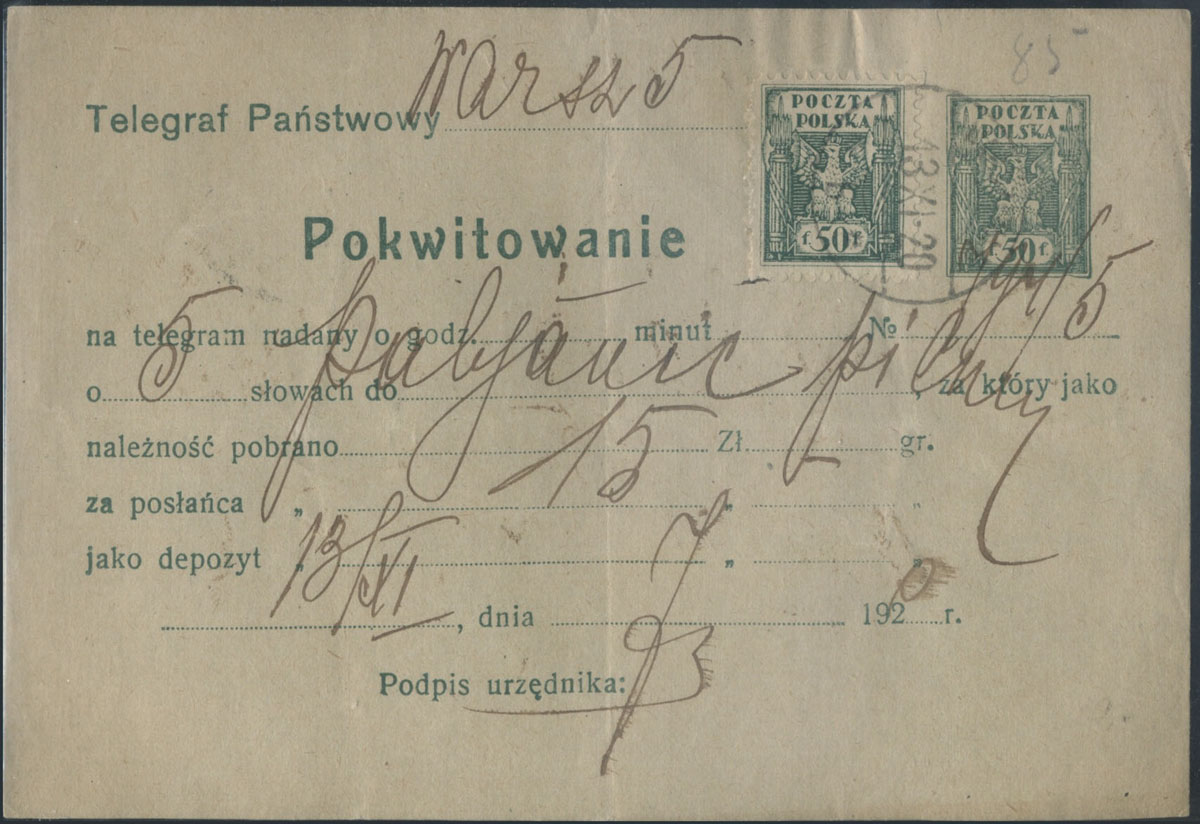 85
Warsz 5
Telegraf Państwowy
POCZTA POLSKA
f. 50 f.
POCZTA POLSKA
f. 50 f.
13.XI.20
Pokwitowanie
na telegram nadany o godz. minut №
5 Pabjanic pilny
o słowach do , za który jako
należność pobrano 15 Zł. gr.
za posłańca „ „ „
jako depozyt „ „ „
13/XI , dnia 1920 r.
Podpis urzędnika: